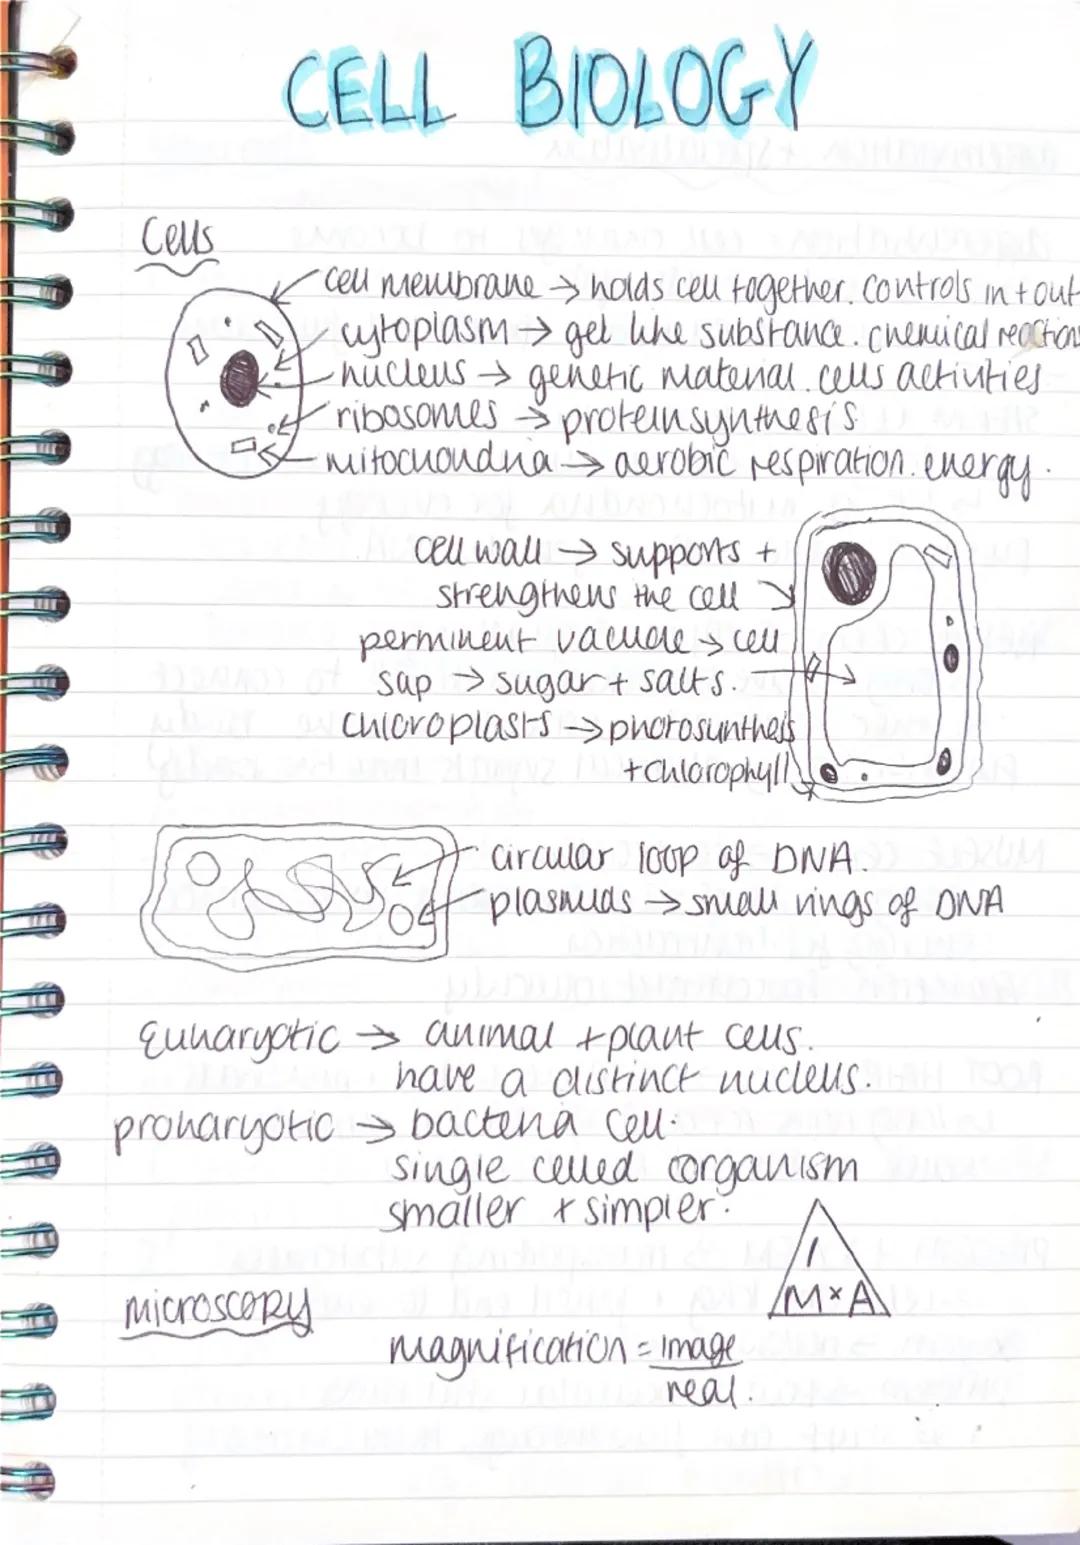 CELL BIOLOGY
Cells
cell membrane → holds cell together. controls in + out
cytoplasm → gel like substance. chemical reactions
nucleus → genetic material. cells activities
ribosomes → protein synthesis.
mitochondria → aerobic respiration. energy.
cell wall → supports +
strengthens the cell
perminent vacuole → cell
sap → sugar + salts.
chloroplasts → photosunthesis
+ chlorophyll
circular loop of DNA.
plasmids → small rings of DNA
Eukaryotic → animal + plant cells.
have a distinct nucleus.
prokaryotic → bacteria cell.
single celled organism
smaller + simpler.
I
M × A
microscopy
magnification = image
real.